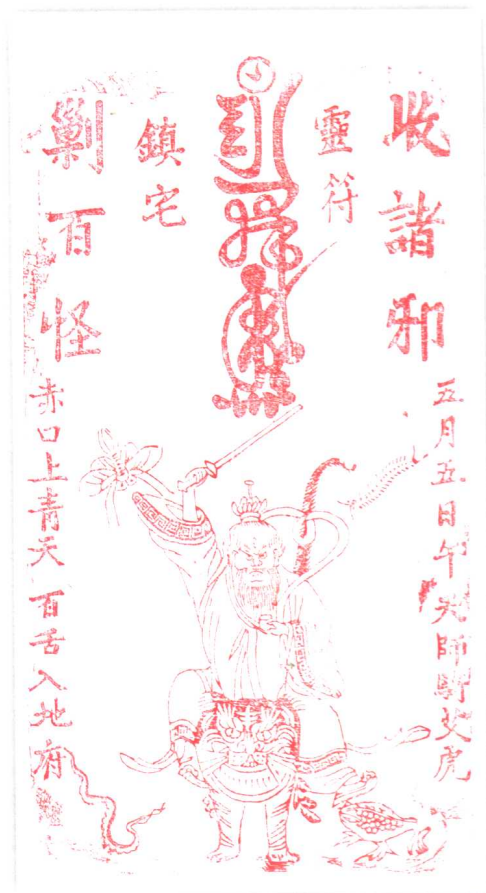 收諸邪
靈符
鎮宅
剿百怪
五月五日午天師騎艾虎
赤口上青天百舌入地府